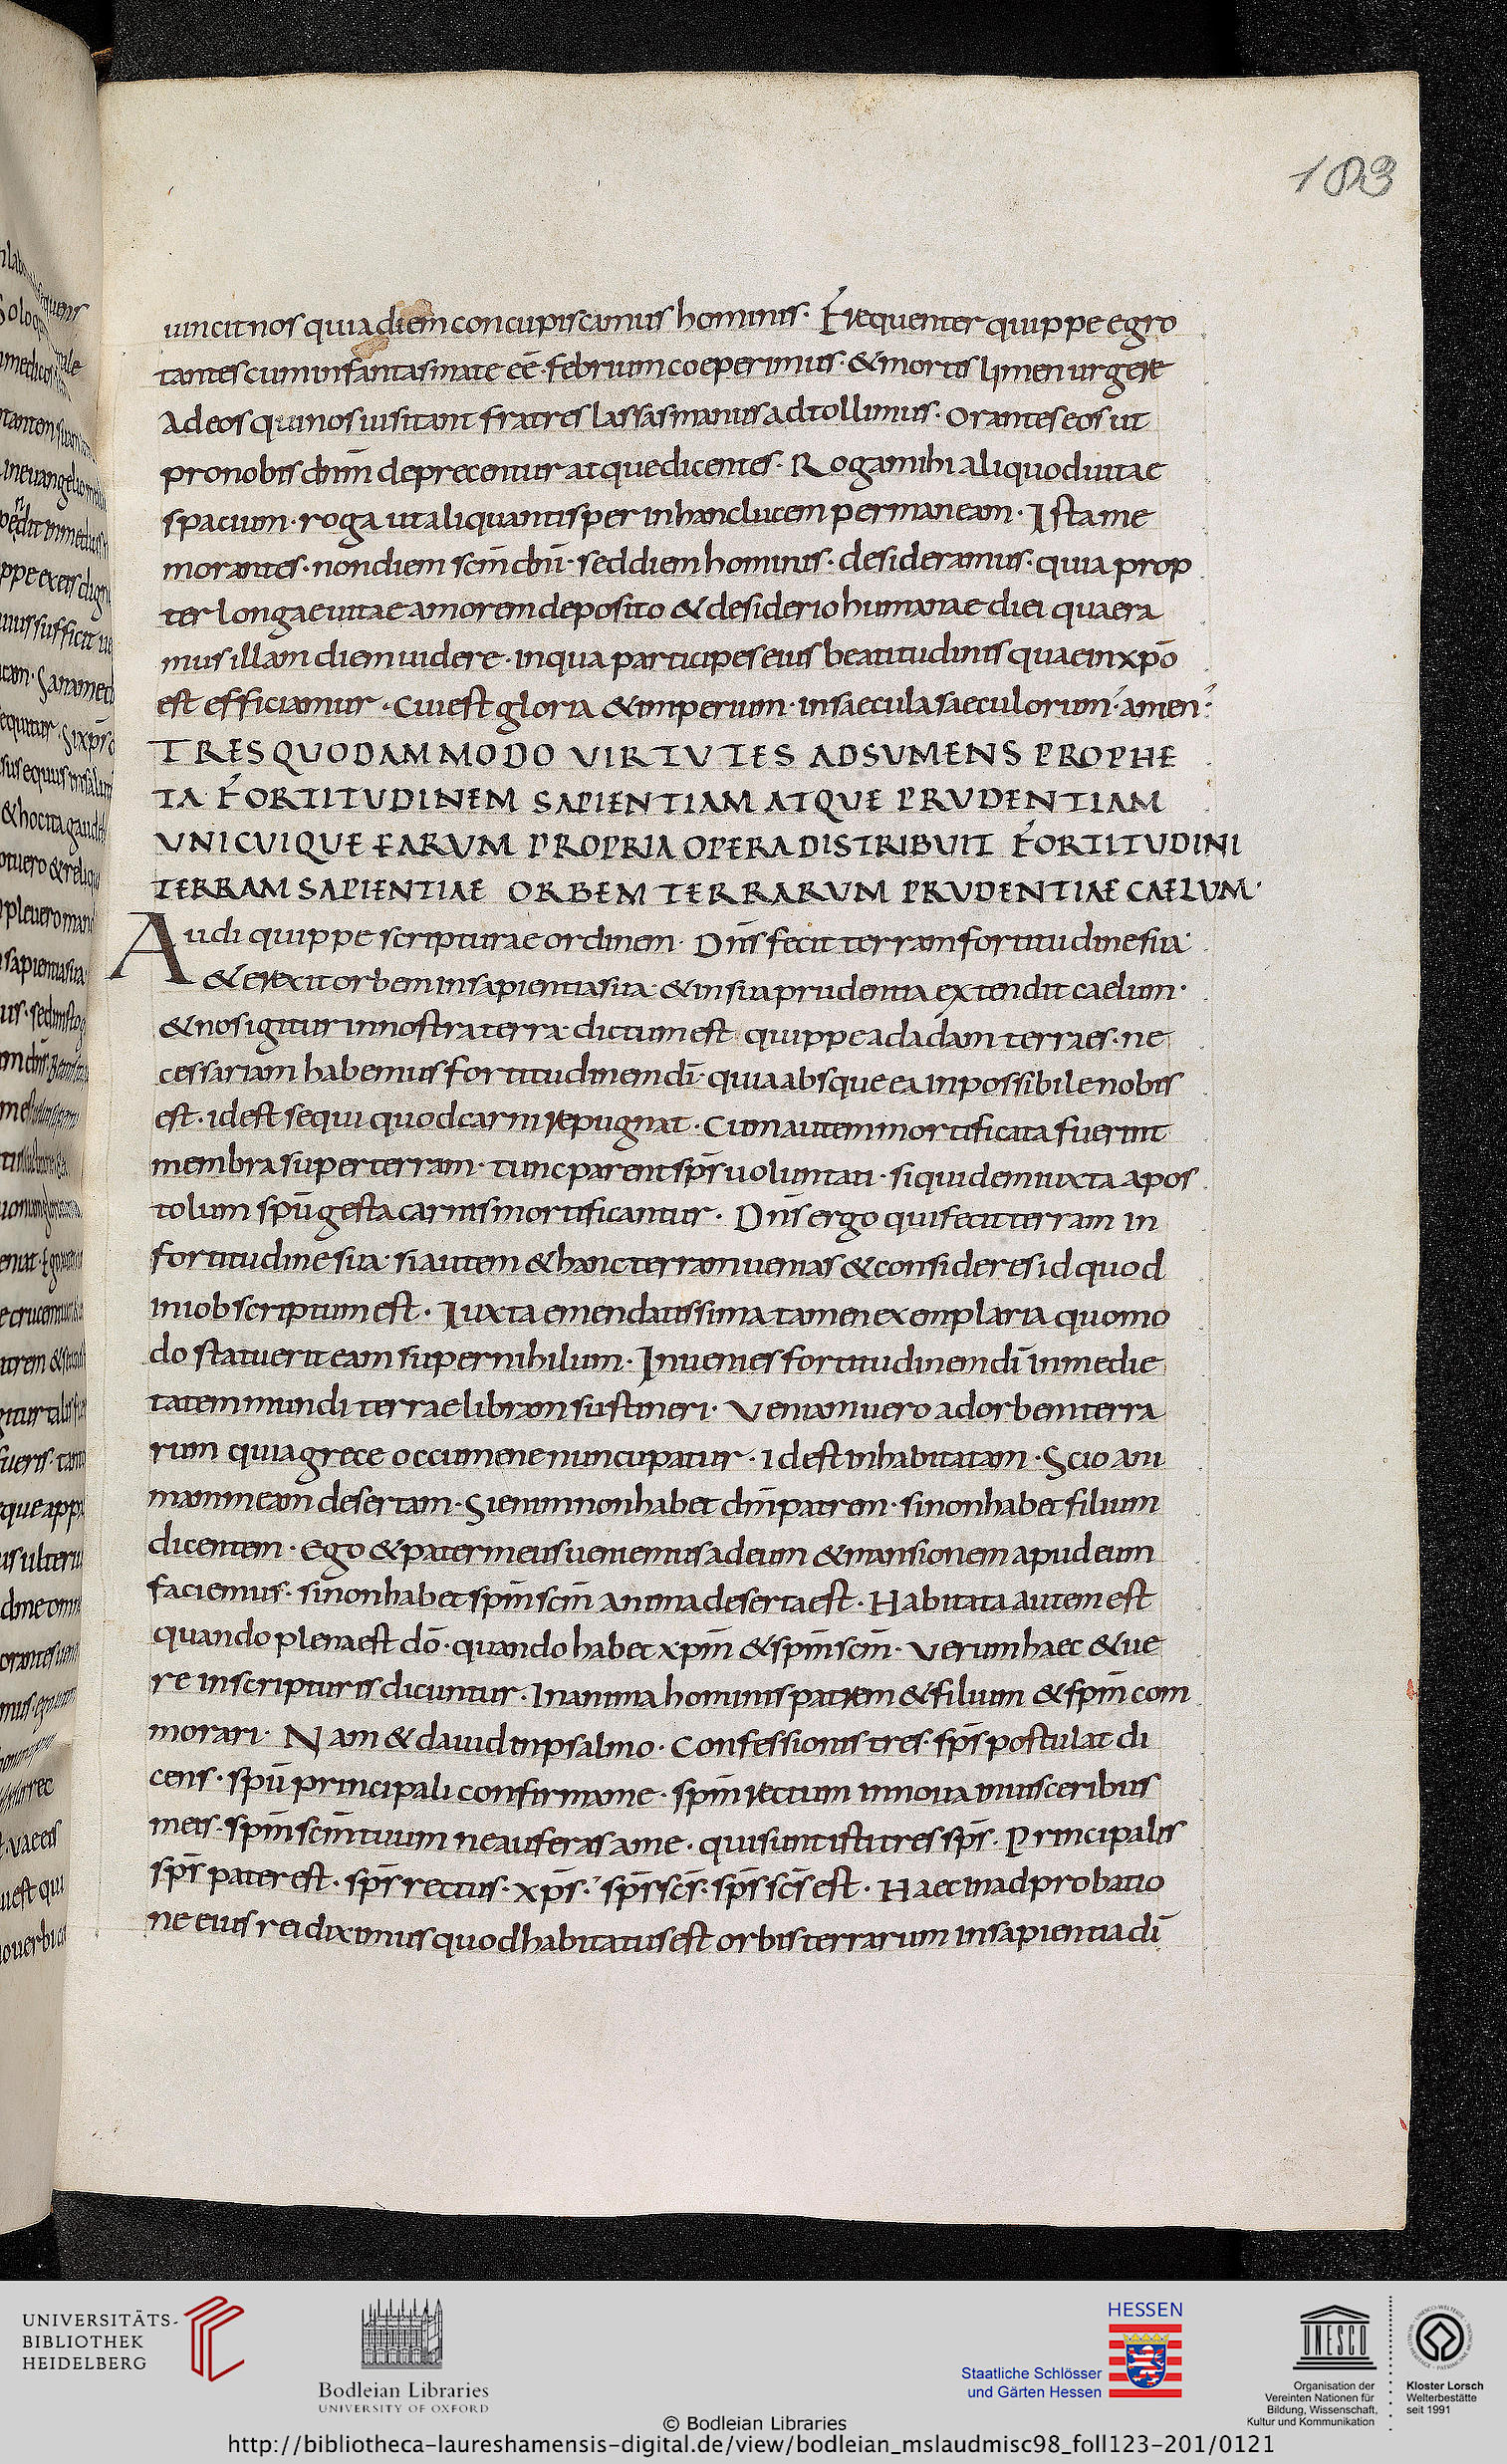 183
uincit nos quia diem concupiscamus hominis· Frequenter quippe egro
tantes cum in fantasmate eē· febrium coeperimus· & mortis limen urgere
Ad eos qui nos uisitant fratres lassas manus adtollimus· orantes eos ut
pro nobis dnm̄ deprecentur atque dicentes· Roga mihi aliquod uitae
spacium· roga ut aliquantisper in hanc lucem permaneam· Ista me
morantes· non diem scm̄ dnī· sed diem hominis· desideramus· quia prop
ter longae uitae amorem deposito & desiderio humanae diei quaera
mus illam diem uidere· in qua participes eius beatitudinis quae in xpō
est efficiamur· Cui est gloria & imperium· in saecula saeculorum· amen·
TRES QUODAMMODO VIRTUTES ADSUMENS PROPHE
TA FORTITUDINEM SAPIENTIAM ATQUE PRUDENTIAM
UNICUIQUE EARUM PROPRIA OPERA DISTRIBUIT FORTITUDINI
TERRAM SAPIENTIAE ORBEM TERRARUM PRUDENTIAE CAELUM·
Audi quippe scripturae ordinem· Dns̄ fecit terram fortitudine sua·
& erexit orbem in sapientia sua· & in sua prudentia extendit caelum·
& nos igitur in nostra terra· dictum est quippe ad adam terra es· ne
cessariam habemus fortitudinem dī· quia absque ea inpossibile nobis
est· id est sequi quod carni repugnat· Cum autem mortificata fuerint
membra super terram· tunc parent sps̄ uoluntati· siquidem iuxta apos
tolum spū gesta carnis mortificantur· Dns̄ ergo qui fecit terram in
fortitudine sua· si autem & hanc terram uenias & consideres id quod
in iob scriptum est· Iuxta emendatissima tamen exemplaria quomo
do statuerit eam super nihilum· Inuenies fortitudinem dī in medie
tatem mundi terrae libram sustineri· Veniam uero ad orbem terra
rum quia grece occumene nuncupatur· id est inhabitatam· Scio ani
mam meam desertam· Si enim non habet dm̄ patrem· si non habet filium
dicentem· Ego & pater meus ueniemus ad eum & mansionem apud eum
faciemus· si non habet spm̄ scm̄ anima deserta est· Habitata autem est
quando plena est dō· quando habet xpm̄ & spm̄ scm̄· Verum haec & ue
re in scripturis dicuntur· In anima hominis patrem & filium & spm̄ com
morari· Nam & dauid in psalmo· Confessionis tres· sps̄ postulat di
cens· spū principali confirma me· spm̄ rectum innoua in uisceribus
meis· spm̄ scm̄ tuum ne auferas a me· qui sunt isti tres sps̄· Principalis
sps̄ pater est· sps̄ rectus· xps̄· sps̄ scs̄· sps̄ scs̄ est· Haec in adprobatio
ne eius rei diximus quod habitatus est orbis terrarum in sapientia dī
UNIVERSITÄTS-
BIBLIOTHEK
HEIDELBERG
Bodleian Libraries
UNIVERSITY OF OXFORD
HESSEN
Staatliche Schlösser
und Gärten Hessen
UNESCO
Organisation der
Vereinten Nationen für
Bildung, Wissenschaft,
Kultur und Kommunikation
Kloster Lorsch
Welterbestätte
seit 1991
© Bodleian Libraries
http://bibliotheca-laureshamensis-digital.de/view/bodleian_mslaudmisc98_foll123-201/0121